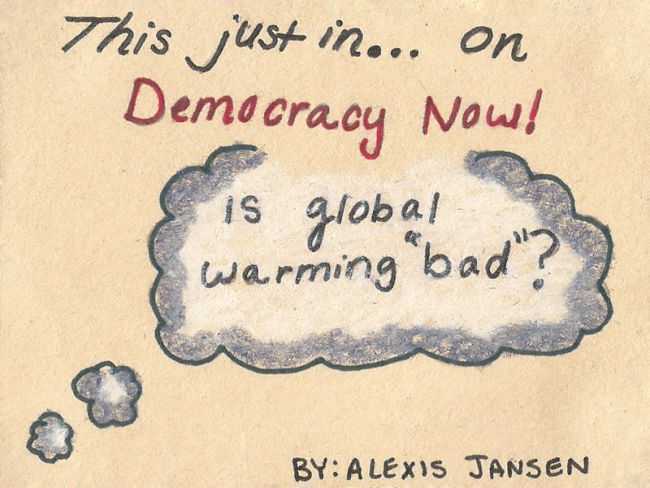 This just in... on
Democracy Now!
Is global
warming "bad"?
BY: ALEXIS JANSEN